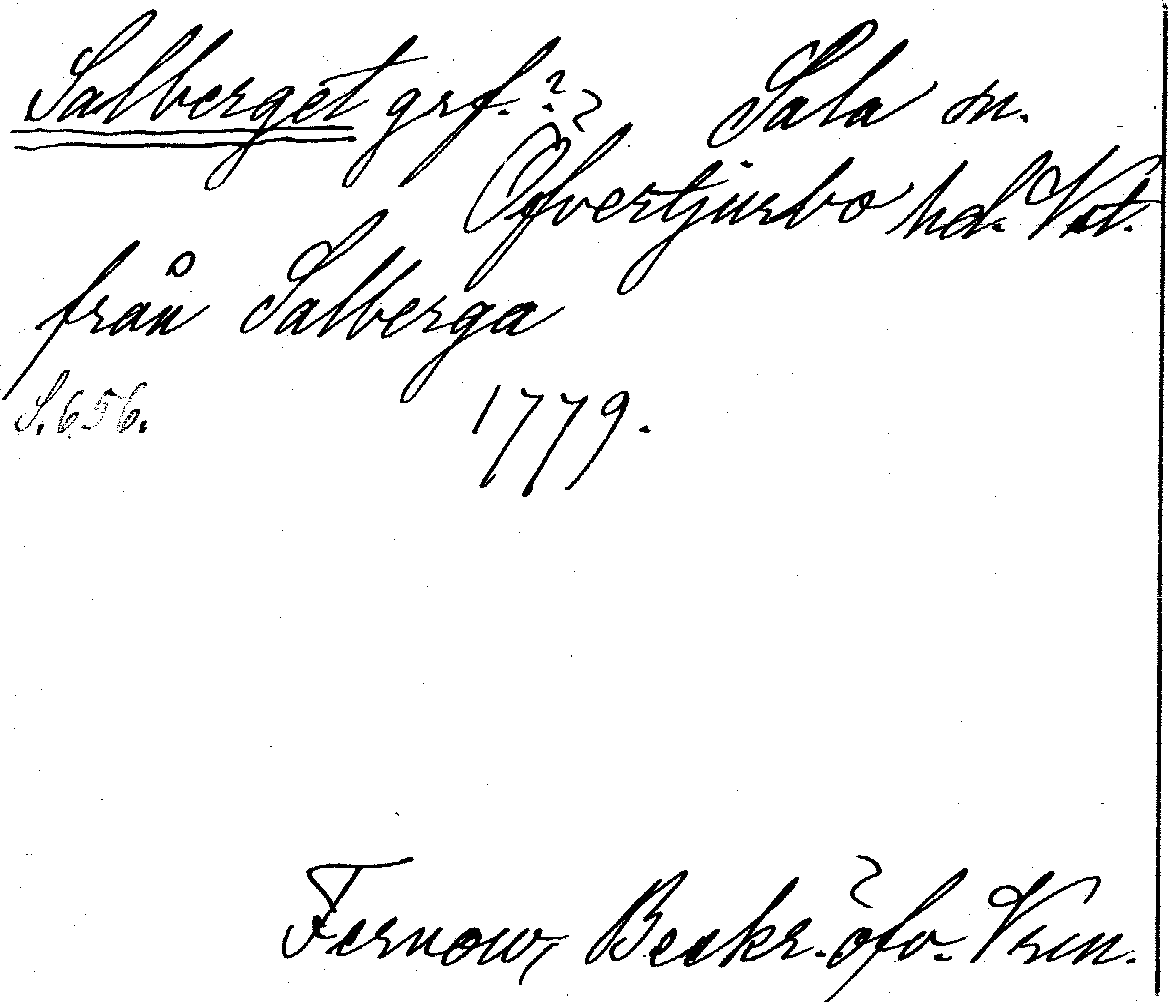 Salberget grf.? Sala sn.
Öfvertjurbo hd. Vst.
från Salberga
S. 656. 1779.
Fernow, Beskr. öfv. Vrm.